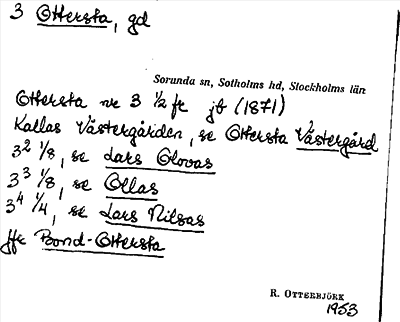 3 Ottersta, gd
Sorunda sn, Sotholms hd, Stockholms län
Ottersta nr 3 1/2 fr jb (1871)
Kallas Västergården, se Ottersta Västergård
3² 1/8, se Lars Olovas
3³ 1/8, se Ollas
3⁴ 1/4, se Lars Nilsas
jfr Bond-Ottersta
R. OTTERBJÖRK
1953